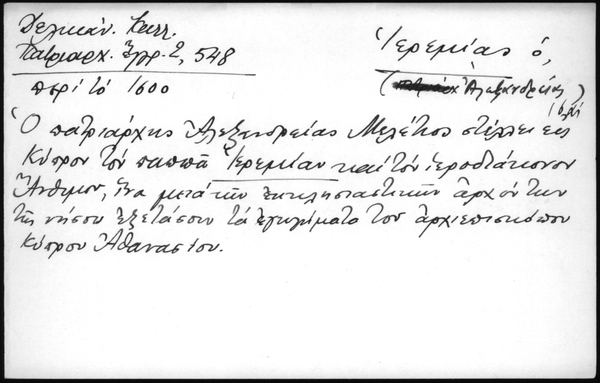 Δελικάν. Καλλ.
Πατριαρχ. Ἔγγρ. 2, 548
περὶ τὸ 1600
Ἱερεμίας ὁ,
( Ἀλεξανδρείας )
Ὁ πατριάρχης Ἀλεξανδρείας Μελέτιος στέλλει εἰς
Κύπρον τὸν παππᾶ Ἱερεμίαν καὶ τὸν ἱεροδιάκονον
Ἄνθιμον, ἵνα μετὰ τῶν ἐκκλησιαστικῶν ἀρχόντων
τῆς νήσου ἐξετάσουν τὰ ἐγκλήματα τοῦ ἀρχιεπισκόπου
Κύπρου Ἀθανασίου.